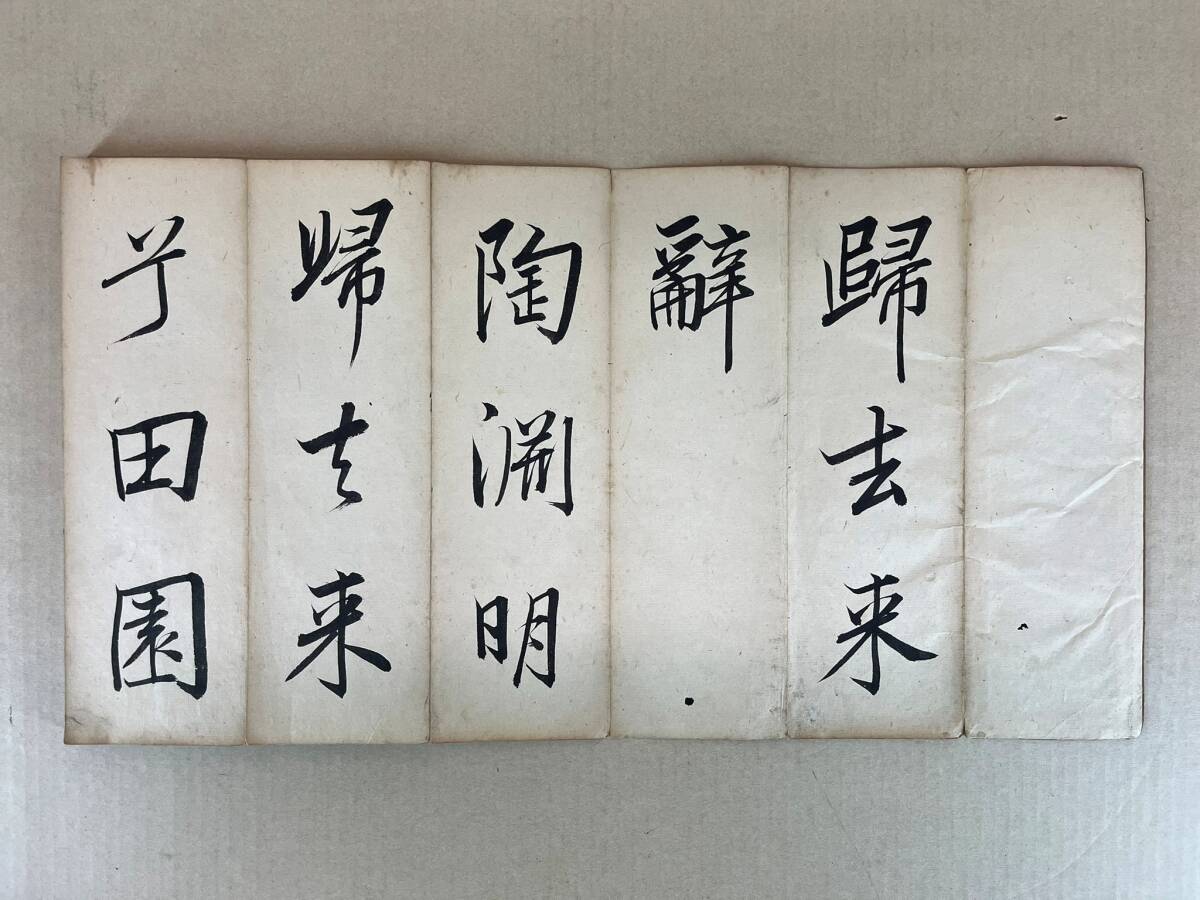 歸去来
辭
陶淵明
歸去来
兮田園